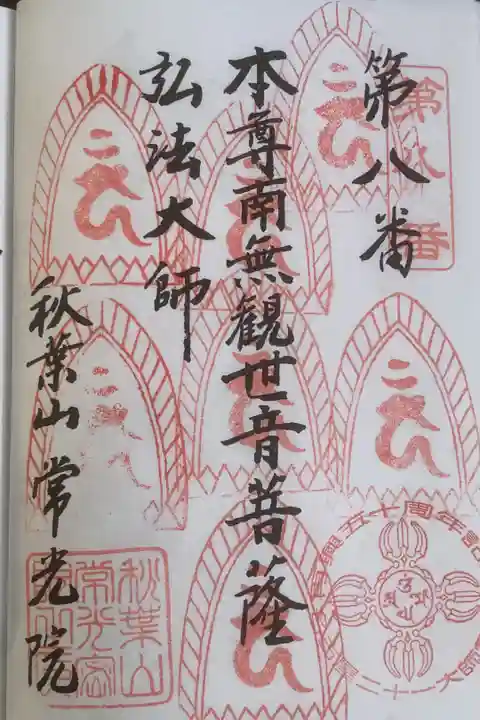 第八番
第八番
本尊南無観世音菩薩
弘法大師
秋葉山常光院
秋葉山
五十周年
二十一大師